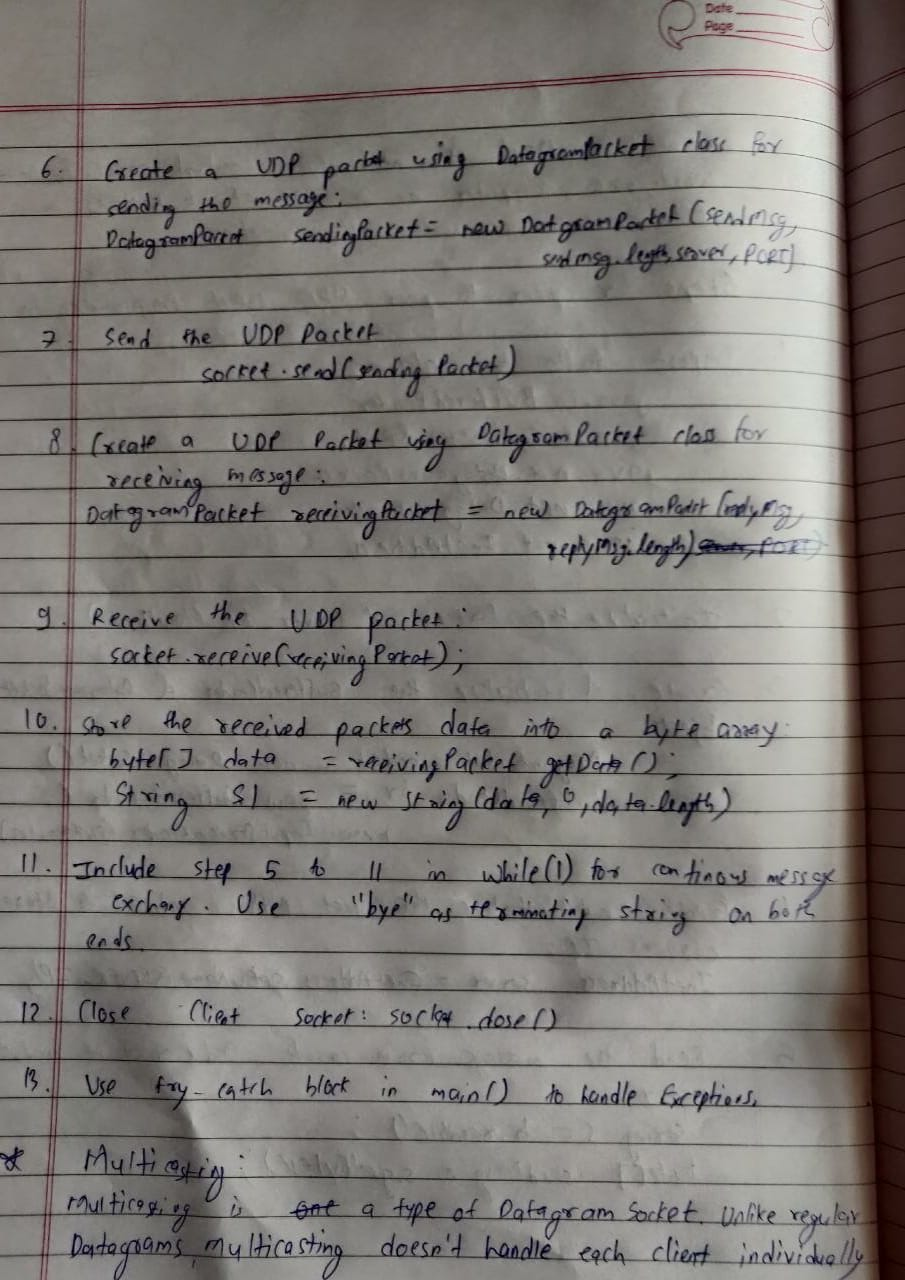 Date
Page
6. Create a UDP packet using DatagramPacket class for
sending the message:
DatagramPacket sendingPacket = new DatgramPacket (sendmsg,
sendmsg.legth, server, PORT)
7 Send the UDP Packet
socket.send(sending Packet)
8. Create a UDP Packet using DatagramPacket class for
receiving message:
DatagramPacket receivingPacket = new DatagramPacket (replyMsg,
replyMsg.length)
9. Receive the UDP packet:
socket.receive(receiving Packet);
10. Store the received packets data into a byte array:
byte[] data = receivingPacket getData();
String S1 = new String (data, 0, data.length)
11. Include step 5 to 11 in while(1) for continous message
exchang. Use "bye" as terminating string on both
ends.
12. Close Client Socket: socket.close()
13. Use try-catch block in main() to handle Exceptions.
* Multicasting:
Multicasting is a type of Datagram Socket. Unlike regular
Datagrams, multicasting doesn't handle each client individually